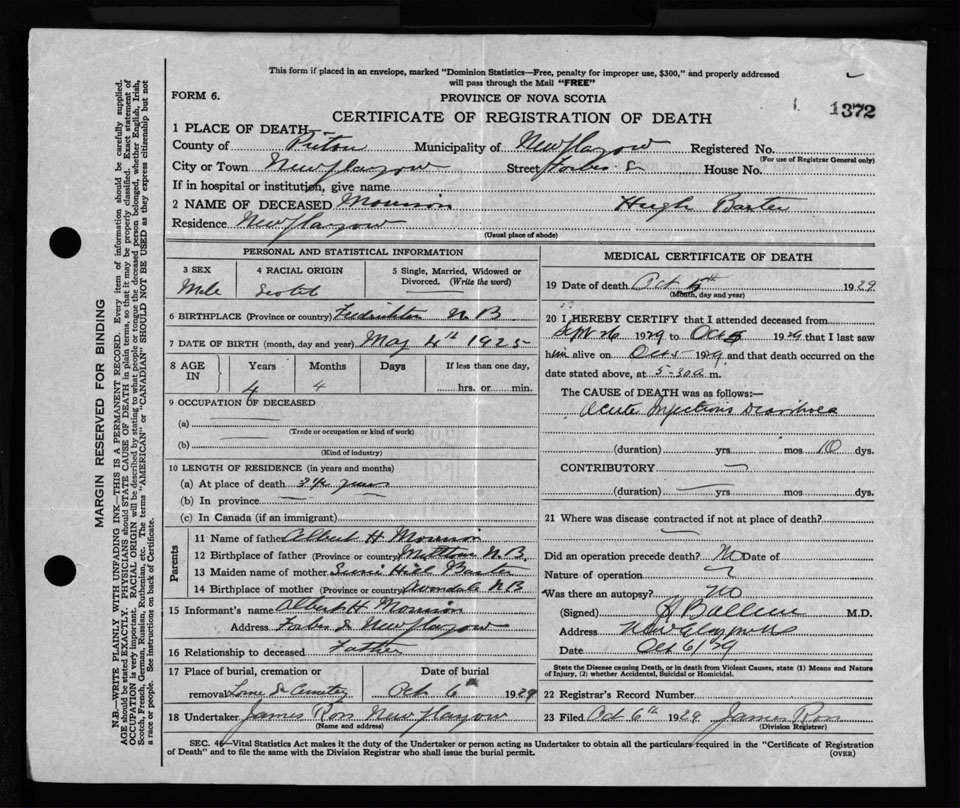 This form if placed in an envelope, marked "Dominion Statistics—Free, penalty for improper use, $300," and properly addressed
will pass through the Mail "FREE"
FORM 6.
PROVINCE OF NOVA SCOTIA
1372
CERTIFICATE OF REGISTRATION OF DEATH
1 PLACE OF DEATH—
County of Pictou Municipality of New Glasgow Registered No.
(For use of Registrar General only)
City or Town New Glasgow Street Forbes St House No.
If in hospital or institution, give name
2 NAME OF DECEASED Morrison Hugh Baxter
Residence New Glasgow
(Usual place of abode)
PERSONAL AND STATISTICAL INFORMATION
3 SEX 4 RACIAL ORIGIN 5 Single, Married, Widowed or
Divorced. (Write the word)
Male Scotch
6 BIRTHPLACE (Province or country) Fredrickton N B
7 DATE OF BIRTH (month, day and year) May 4th 1925
8 AGE IN Years Months Days If less than one day,
4 4 hrs. or min.
9 OCCUPATION OF DECEASED
(a)
(Trade or occupation or kind of work)
(b)
(Kind of industry)
10 LENGTH OF RESIDENCE (in years and months)
(a) At place of death years
(b) In province
(c) In Canada (if an immigrant)
Parents
11 Name of father Albert H Morrison
12 Birthplace of father (Province or country) N.B.
13 Maiden name of mother Hill Baxter
14 Birthplace of mother (Province or country) N B
15 Informant's name Albert H Morrison
Address Forbes St New Glasgow
16 Relationship to deceased Father
17 Place of burial, cremation or Date of burial
removal Lorne St Cemetery Oct 6th 1929
18 Undertaker James Ross New Glasgow
(Name and address)
MEDICAL CERTIFICATE OF DEATH
19 Date of death Oct 5th 1929
(Month, day and year)
20 I HEREBY CERTIFY that I attended deceased from
Sept 26 1929 to Oct 5 1929 that I last saw
him alive on Oct 5 1929 and that death occurred on the
date stated above, at 5-30 a m.
The CAUSE of DEATH was as follows:—
Acute Infectious Diarrhoea
(duration) yrs mos 10 dys.
CONTRIBUTORY
(duration) yrs mos dys.
21 Where was disease contracted if not at place of death?
Did an operation precede death? No Date of
Nature of operation
Was there an autopsy? No
(Signed) M.D.
Address New Glasgow NS
Date Oct 6/29
State the Disease causing Death, or in death from Violent Causes, state (1) Means and Nature
of Injury, (2) whether Accidental, Suicidal or Homicidal.
22 Registrar's Record Number
23 Filed Oct 6th 1929 James Ross
(Division Registrar)
SEC. 46—Vital Statistics Act makes it the duty of the Undertaker or person acting as Undertaker to obtain all the particulars required in the "Certificate of Registration
of Death" and to file the same with the Division Registrar who shall issue the burial permit. (OVER)
MARGIN RESERVED FOR BINDING
N.B.—WRITE PLAINLY WITH UNFADING INK—THIS IS A PERMANENT RECORD. Every item of information should be carefully supplied.
AGE should be stated EXACTLY. PHYSICIANS should STATE CAUSE OF DEATH in plain terms, so that it may be properly classified. Exact statement of
OCCUPATION is very important. RACIAL ORIGIN will be described by stating to what people or tongue the deceased person belonged, whether English, Irish,
Scotch, French, German, Russian, Ruthenian, etc. The terms "AMERICAN" or "CANADIAN" SHOULD NOT BE USED as they express citizenship but not
a race or people. See instructions on back of Certificate.